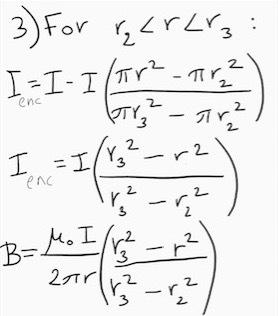 3) For r₂ < r < r₃ :
I_enc = I - I ( (πr² - πr₂²) / (πr₃² - πr₂²) )
I_enc = I ( (r₃² - r²) / (r₃² - r₂²) )
B = (μ₀ I / 2πr) ( (r₃² - r²) / (r₃² - r₂²) )